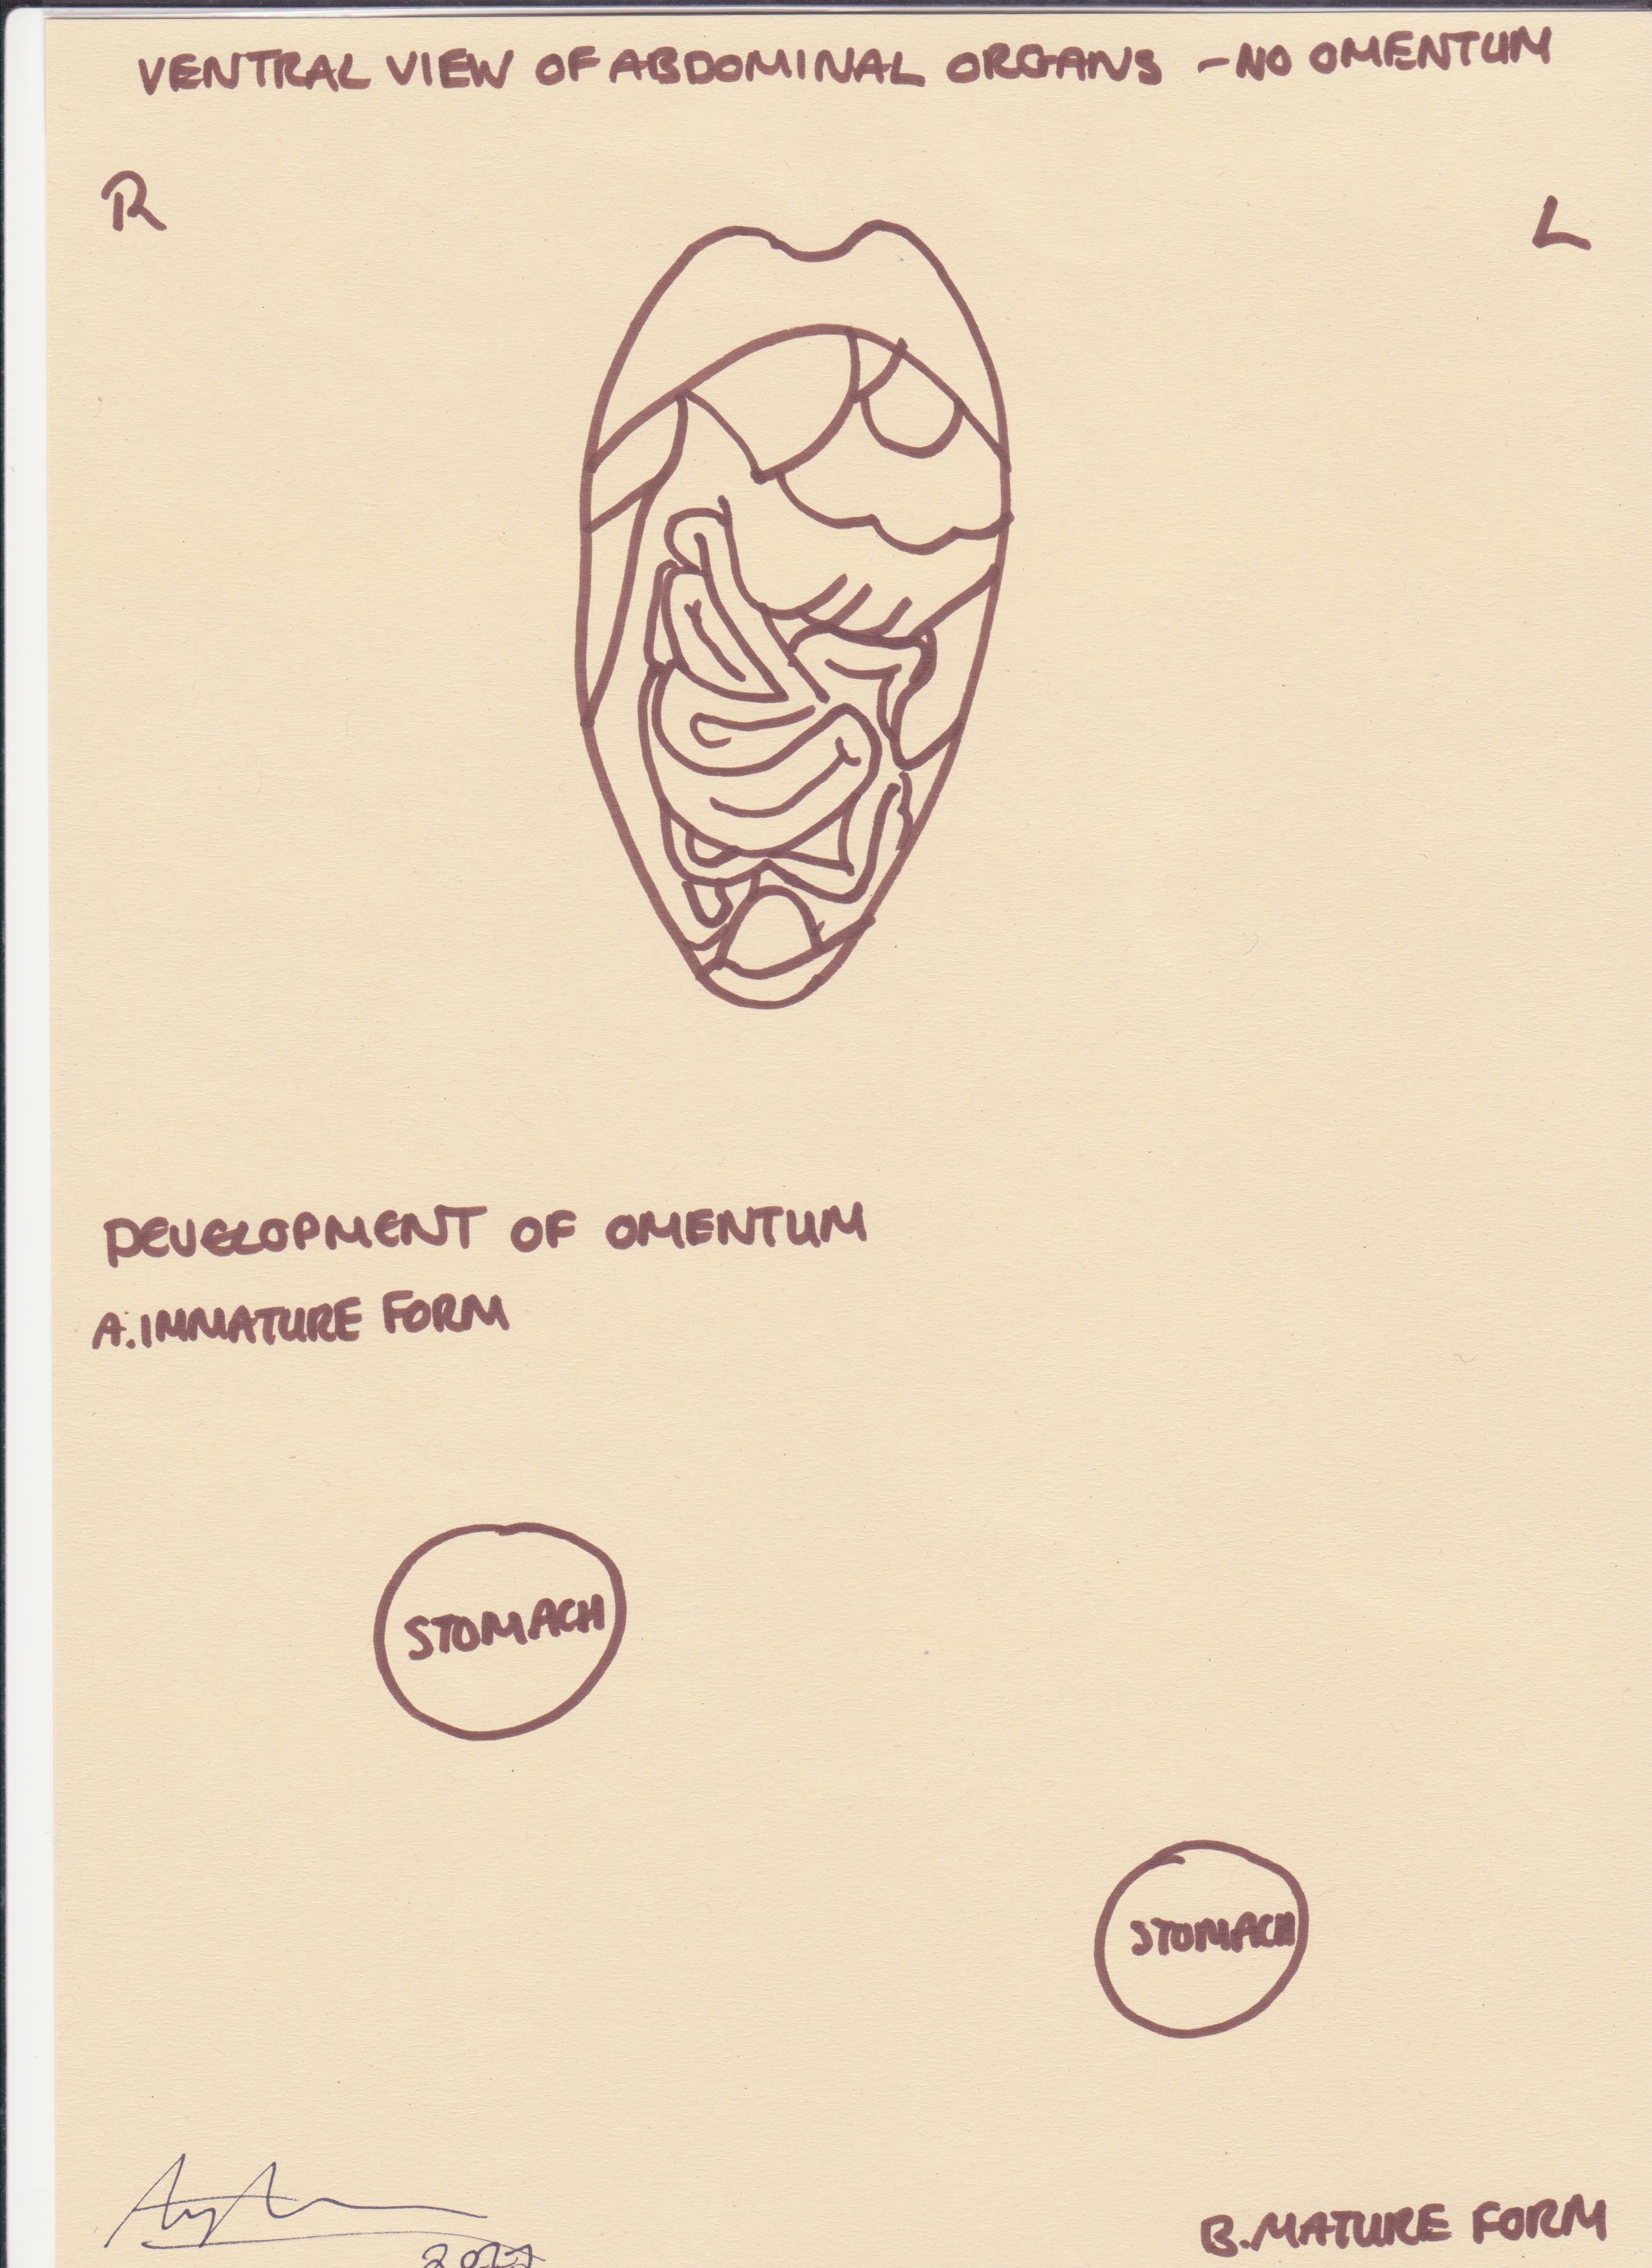 VENTRAL VIEW OF ABDOMINAL ORGANS - NO OMENTUM
R
L
DEVELOPMENT OF OMENTUM
A. IMMATURE FORM
STOMACH
STOMACH
B. MATURE FORM